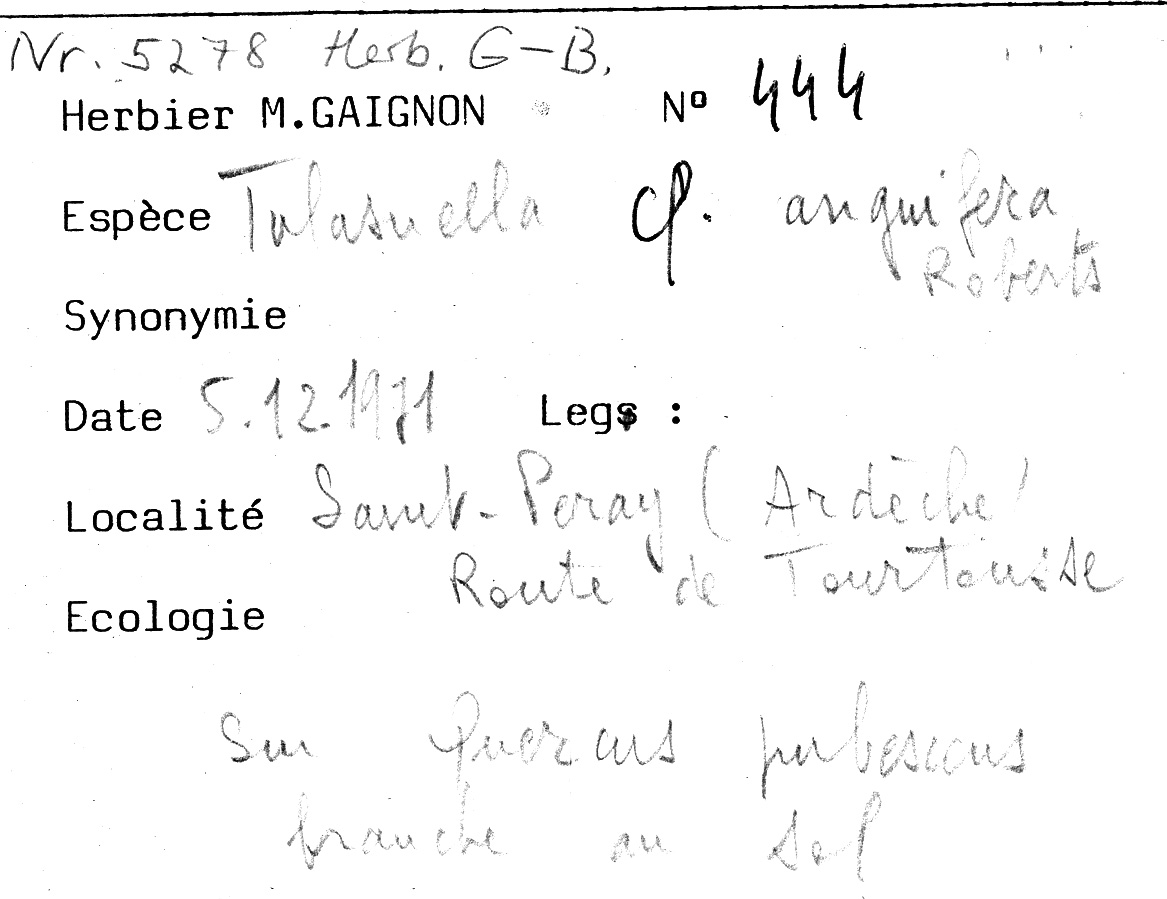 Nr. 5278 Herb. G-B.
Herbier M.GAIGNON Nº 444
Espèce Tulasnella cf. anguifera
Roberts
Synonymie
Date 5.12.1971 Legs :
Localité Saint-Peray (Ardèche)
Route de
Ecologie
Sur Quercus pubescens
branche au sol